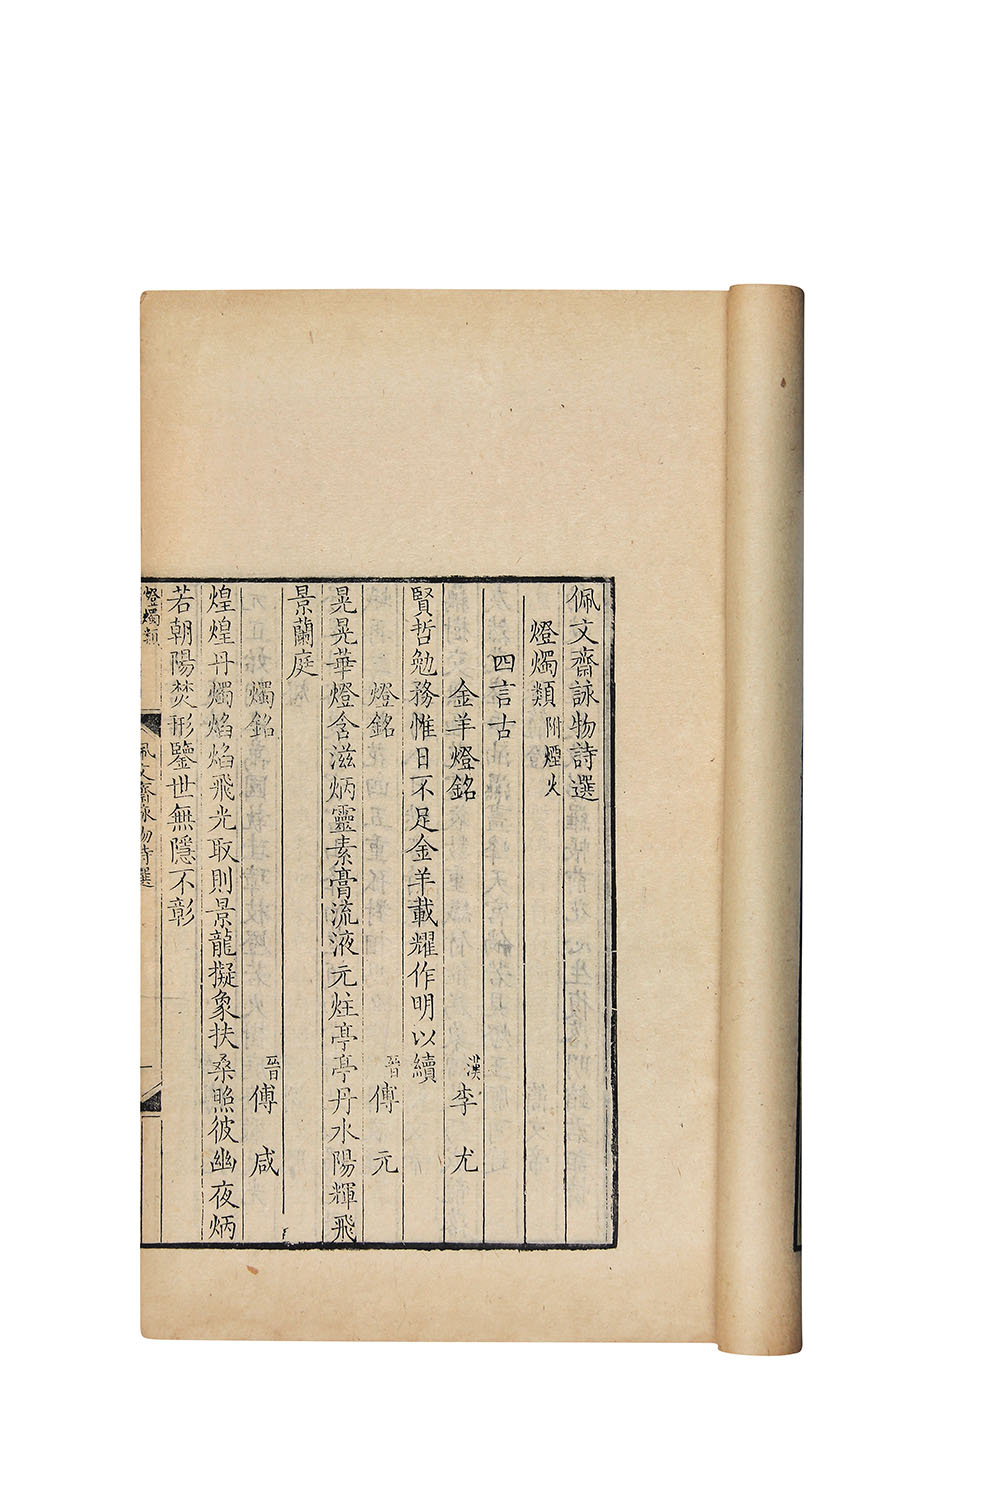 佩文齋詠物詩選
燈燭類附煙火
四言古
金羊燈銘 漢李尤
賢哲勉務惟日不足金羊載耀作明以續
燈銘 晉傅元
晃晃華燈含滋炳靈素膏流液元炷亭亭丹水陽輝飛
景蘭庭
燭銘 晉傅咸
煌煌丹燭焰焰飛光取則景龍擬象扶桑照彼幽夜炳
若朝陽焚形鑒世無隱不彰
燈燭類 佩文齋詠物詩選